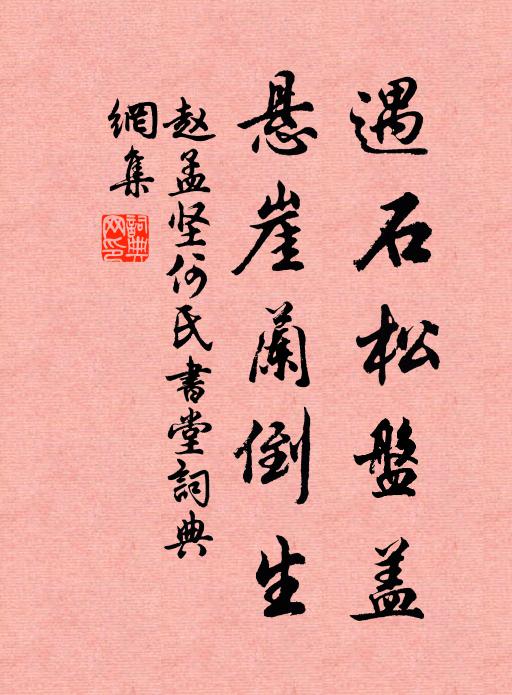 遇石松盤盖
悬崖蘭倒生
赵孟坚何氏書堂詞典
網集
詞典网印